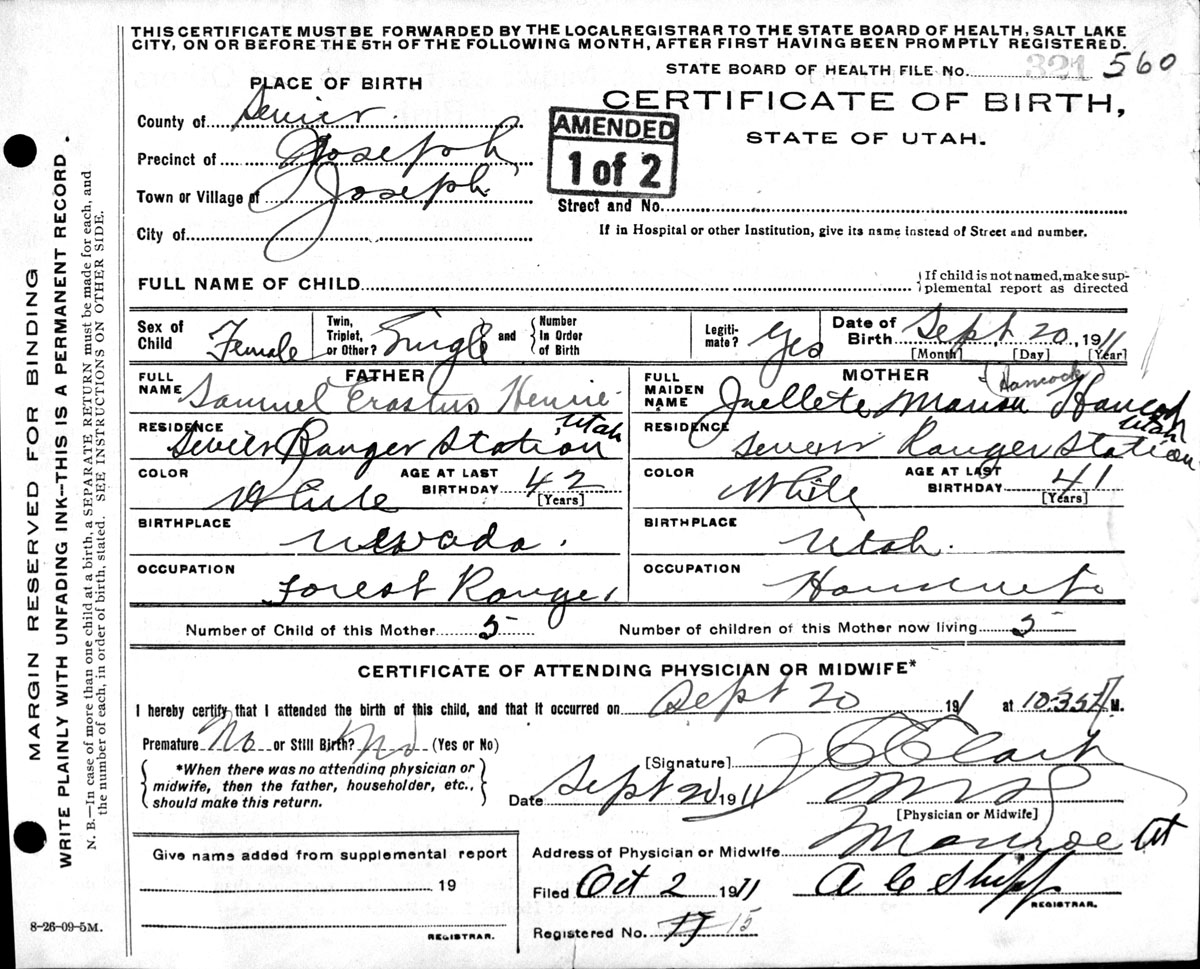 THIS CERTIFICATE MUST BE FORWARDED BY THE LOCAL REGISTRAR TO THE STATE BOARD OF HEALTH, SALT LAKE
CITY, ON OR BEFORE THE 5TH OF THE FOLLOWING MONTH, AFTER FIRST HAVING BEEN PROMPTLY REGISTERED.
STATE BOARD OF HEALTH FILE NO. 321 560
PLACE OF BIRTH
CERTIFICATE OF BIRTH,
STATE OF UTAH.
County of Sevier
AMENDED
1 of 2
Precinct of Joseph
Town or Village of Joseph
Street and No.
City of
If in Hospital or other Institution, give its name instead of Street and number.
FULL NAME OF CHILD
If child is not named, make sup-
plemental report as directed
Sex of Child Female
Twin, Triplet, or Other? Single and Number In Order of Birth
Legiti-mate? Yes
Date of Birth Sept 20, 1911
[Month] [Day] [Year]
FATHER
MOTHER (Hancock)
FULL NAME Samuel Erastus Henrie
FULL MAIDEN NAME Juellete Hancock
RESIDENCE Sevier Ranger Station Utah
RESIDENCE Sevier Ranger Station Utah
COLOR White AGE AT LAST BIRTHDAY 42 [Years]
COLOR White AGE AT LAST BIRTHDAY 41 [Years]
BIRTHPLACE Nevada.
BIRTHPLACE Utah.
OCCUPATION Forest Ranger
OCCUPATION Housewife
Number of Child of this Mother 5
Number of children of this Mother now living 5
CERTIFICATE OF ATTENDING PHYSICIAN OR MIDWIFE*
I hereby certify that I attended the birth of this child, and that it occurred on Sept 20 191 at 10:35 M.
Premature No or Still Birth? No (Yes or No)
*When there was no attending physician or
midwife, then the father, householder, etc.,
should make this return.
[Signature] Clark
Date Sept 20 1911
[Physician or Midwife]
Give name added from supplemental report
19
REGISTRAR.
Address of Physician or Midwife Monroe Ut
Filed Oct 2 1911 A C Shipp
REGISTRAR.
Registered No. 15
8-26-09-5M.
MARGIN RESERVED FOR BINDING
WRITE PLAINLY WITH UNFADING INK—THIS IS A PERMANENT RECORD.
N. B.—In case of more than one child at a birth, a SEPARATE RETURN must be made for each, and
the number of each, in order of birth, stated. SEE INSTRUCTIONS ON OTHER SIDE.